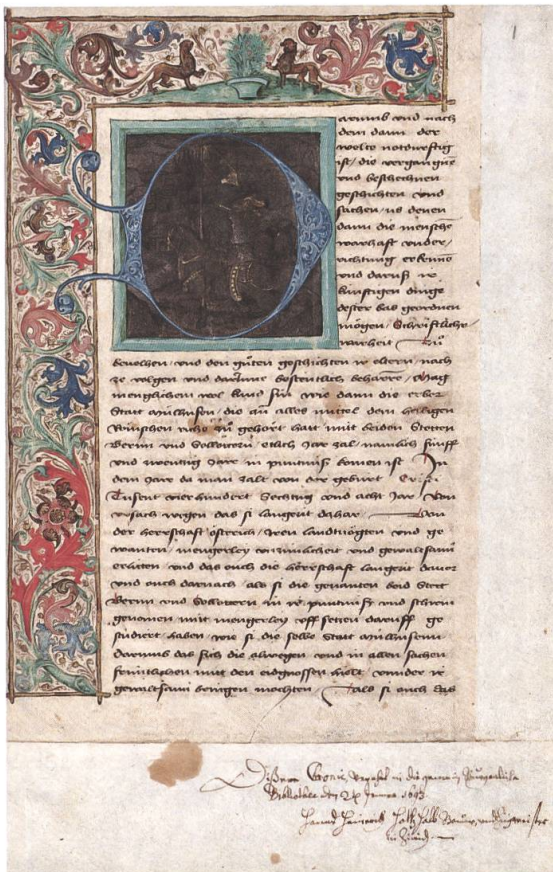 1
arumb vnd nach
dem dann der
welte notdurftig
ist / die vergangne
vnd beschechnen
geschichten vnd
sachen / us denen
dann die mensche
warhaft vnder /
richtung erkenne
vnd daruß ir
künftigen dinge
dester bas geordnen
mögen / Schriftliche
warheit Zu
beuelhen / vnd den guten geschichten ir eltern / nach
ze volgen vnd darinne bestentlich beharre / Mag
menglichem wol kund sin wie dann die erber
Statt mulhusen / die an alles mittel dem heiligen
Römschen riche zu gehört hatt mit beiden Stetten
Bernn vnd Sollottern / etlich Jare zal / namlich fünff
vnd zwentzig Jare in puntniß komen ist In
dem Jare da man zalt von der geburt Cristi
Tusent vierhundert Sechtzig vnd acht Jar Von
vrsach wegen das si langezit dahar Von
der herrschaft östrich / iren landtuögten vnd ge
wanten / mengerley vnzimlicheit vnd gewaltsami
erlitten vnd das ouch die herrschaft langezit dauor
vnd ouch darnach / als si die genanten beid Stett
Bernn vnd Sollottern in ir puntniß vnd schirm
genomen mit mengerley vff setzen daruff ge
studiert haben / wie si die selbe Statt mulhusenn
darumb das sich die alwegen vnd in allen sachen
fruntlichen mit den eidgnossen hielt / vnnder ir
gewaltsami bringen mochten Als si ouch das
Dißere Cronic, verehrt in die gemein Burgerliche
Bibliothec den 24 Jenner
Hans Heinrich Holtzhalb
in Zürich